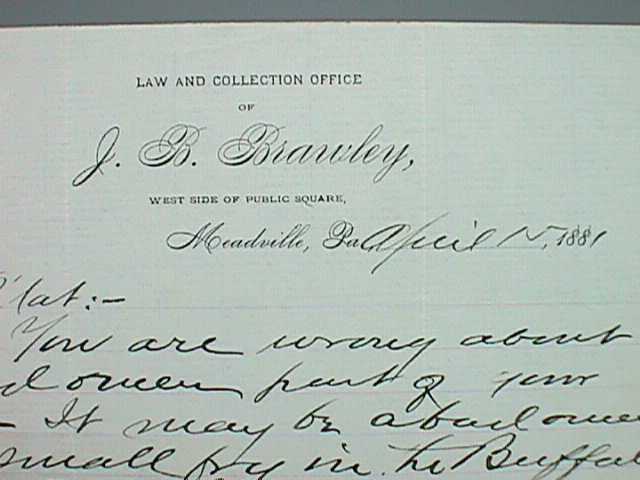 LAW AND COLLECTION OFFICE
OF
J. B. Brawley,
WEST SIDE OF PUBLIC SQUARE,
Meadville, Pa April 15, 1881
You are wrong about
part of your
It may be
small fry in the Buffal